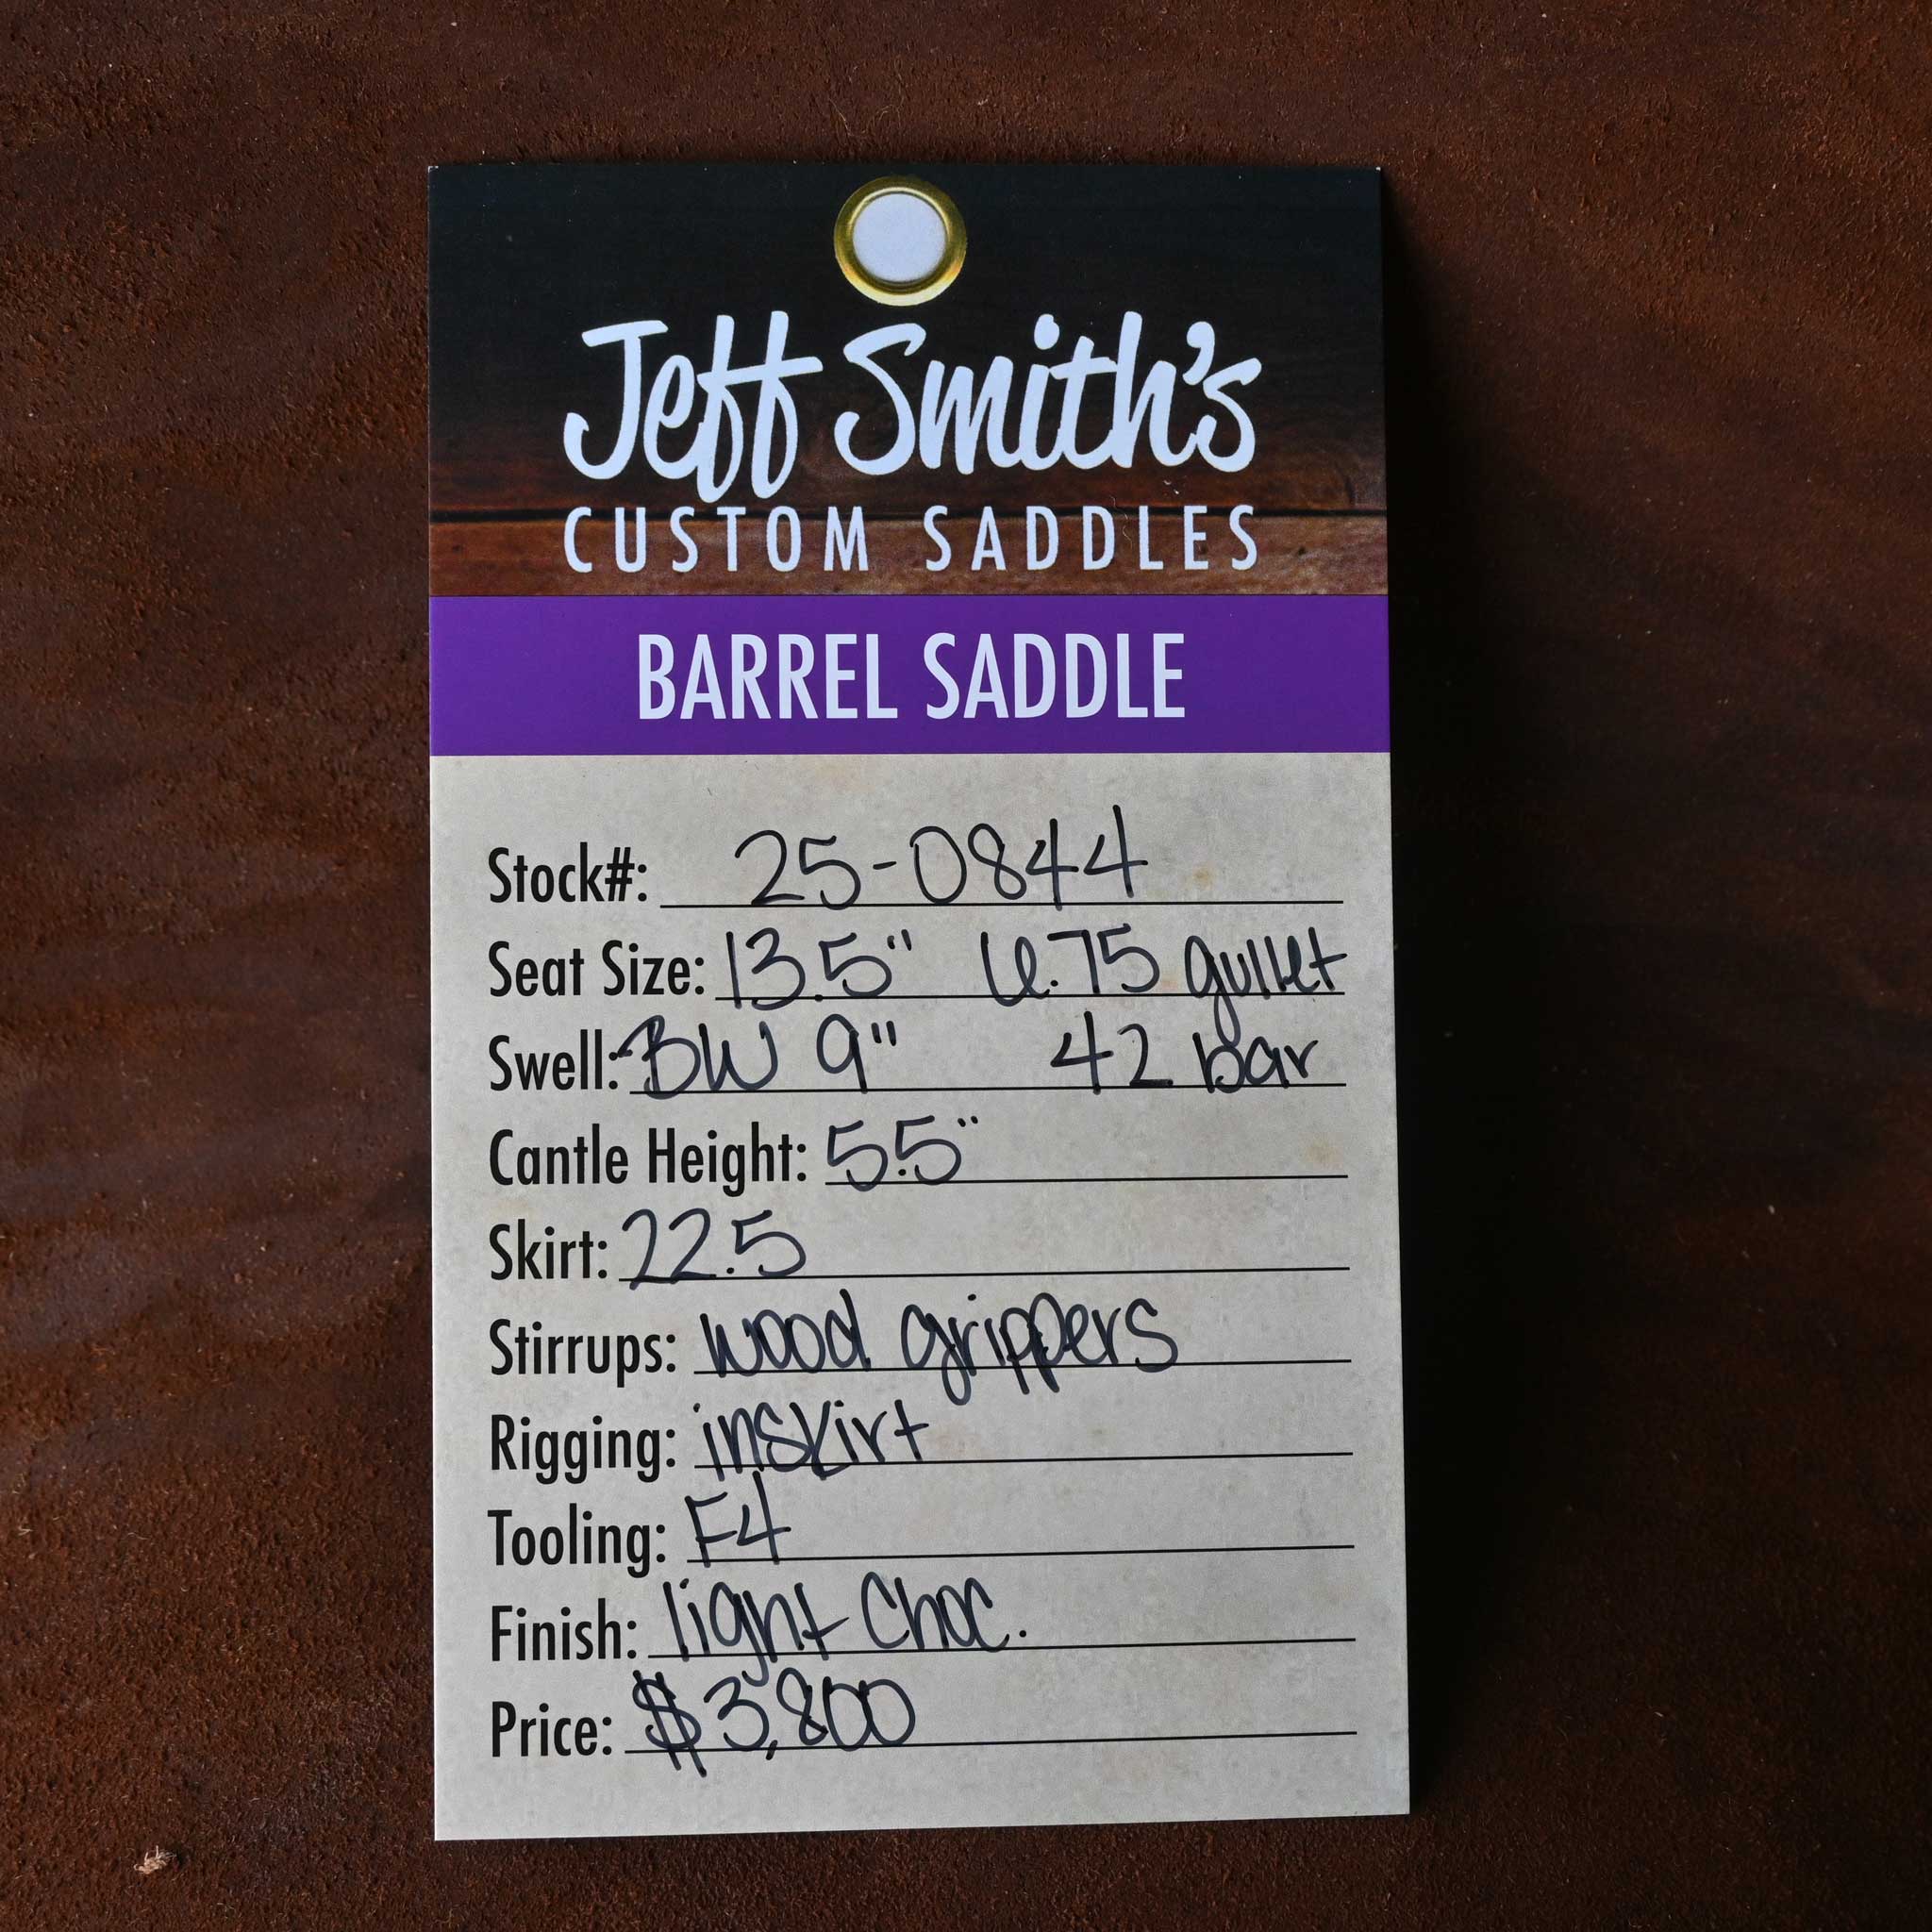 Jeff Smith's
CUSTOM SADDLES
BARREL SADDLE
Stock#: 25-0844
Seat Size: 13.5" 6.75 gullet
Swell: BW 9" 42 bar
Cantle Height: 5.5"
Skirt: 22.5
Stirrups: wood grippers
Rigging: inskirt
Tooling: F4
Finish: light Choc.
Price: $3,800